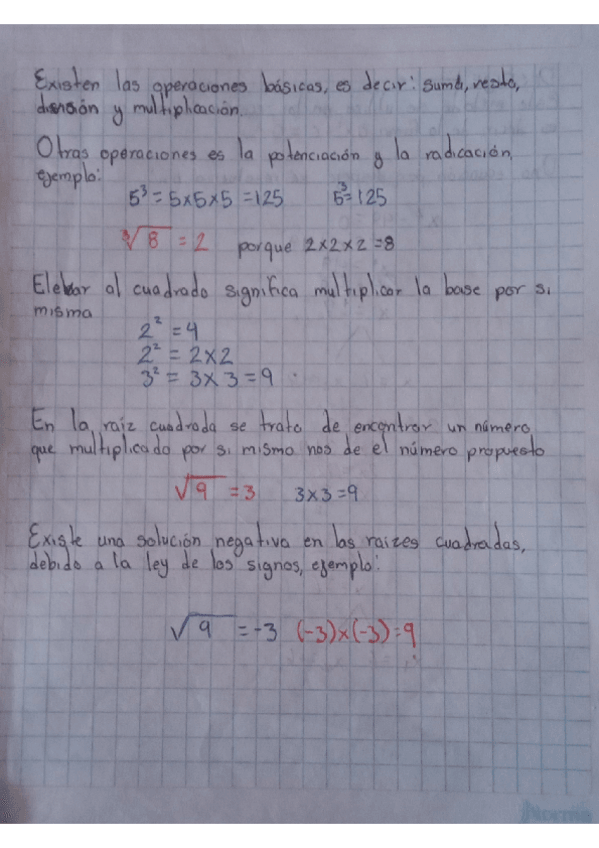 Existen las operaciones básicas, es decir: suma, resta,
división y multiplicación.
Otras operaciones es la potenciación y la radicación,
ejemplo:
5³ = 5x5x5 = 125 5³= 125
∛8 = 2 porque 2x2x2 =8
Elebar al cuadrado significa multiplicar la base por si
misma
2² = 4
2² = 2x2
3² = 3x3 = 9
En la raíz cuadrada se trata de encontrar un número
que multiplicado por si mismo nos de el número propuesto
√9 = 3 3x3=9
Existe una solución negativa en las raizes cuadradas,
debido a la ley de los signos, ejemplo:
√9 = -3 (-3)x(-3)=9
Norma